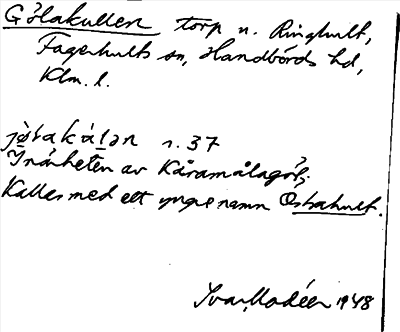 Gölakullen torp u. Ringhult,
Fagerhults sn, Handbörds hd,
Klm. l.
jø̀lakálən s. 37
I närheten av Kåramålagöl;
Kallas med ett yngre namn Östrahult.
Ivar Modéer 1948